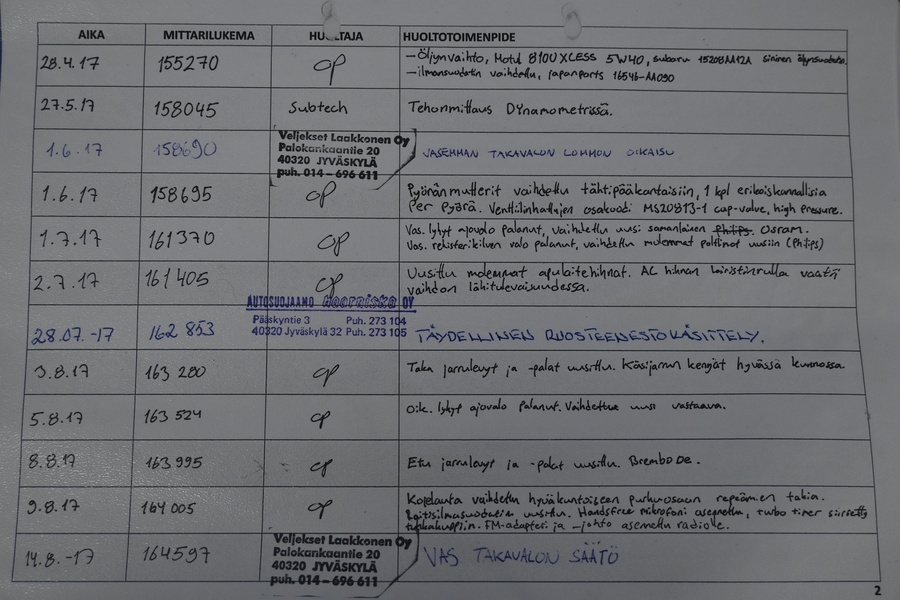 AIKA MITTARILUKEMA HUOLTAJA HUOLTOTOIMENPIDE
28.4.17 155270 OP -Öljynvaihto, Motul 8100 XCLESS 5W40, subaru 15208AA12A sininen öljynsuodatin.
-ilmansuodatin vaihdettu, japanparts 16546-AA090
27.5.17 158045 Subtech Tehonmittaus Dynamometrissä.
1.6.17 158690 Veljekset Laakkonen Oy
Palokankaantie 20
40320 JYVÄSKYLÄ
puh. 014-696 611
VASEMMAN TAKAVALON LOMMON OIKAISU
1.6.17 158695 OP Pyöränmutterit vaihdettu tähtipääkantaisiin, 1 kpl erikoiskannallisia
per pyörä. Venttiilinhattujen osakoodi MS20813-1 cap-valve, high pressure.
1.7.17 161370 OP Vas. lyhyt ajovalo palanut, vaihdettu uusi samanlainen Philips. Osram.
Vas. rekisterikilven valo palanut, vaihdettu molemmat polttimot uusiin (Philips)
2.7.17 161405 OP Uusittu molemmat apulaitehihnat. AC hihnan kiristinrulla vaatii
vaihdon lähitulevaisuudessa.
28.07.-17 162 853 AUTOSUOJAAMO OY
Pääskyntie 3 Puh. 273 104
40320 Jyväskylä 32 Puh. 273 105
TÄYDELLINEN RUOSTEENESTOKÄSITTELY.
3.8.17 163 280 OP Taka jarrulevyt ja -palat uusittu. Käsijarrun kengät hyvässä kunnossa.
5.8.17 163 524 OP Oik. lyhyt ajovalo palanut. Vaihdettu uusi vastaava.
8.8.17 163 995 OP Etu jarrulevyt ja -palat uusittu. Brembo De.
9.8.17 164 005 OP Kojelauta vaihdettu hyväkuntoiseen purkuosaan repeämien takia.
Raitisilmasuodatin uusittu. Handsfree mikrofoni asennettu, turbo timer siirretty
tuhkakuppiin. FM-adapteri ja -johto asennettu radiolle.
14.8.-17 164597 Veljekset Laakkonen Oy
Palokankaantie 20
40320 JYVÄSKYLÄ
puh. 014-696 611
VAS TAKAVALON SÄÄTÖ
2